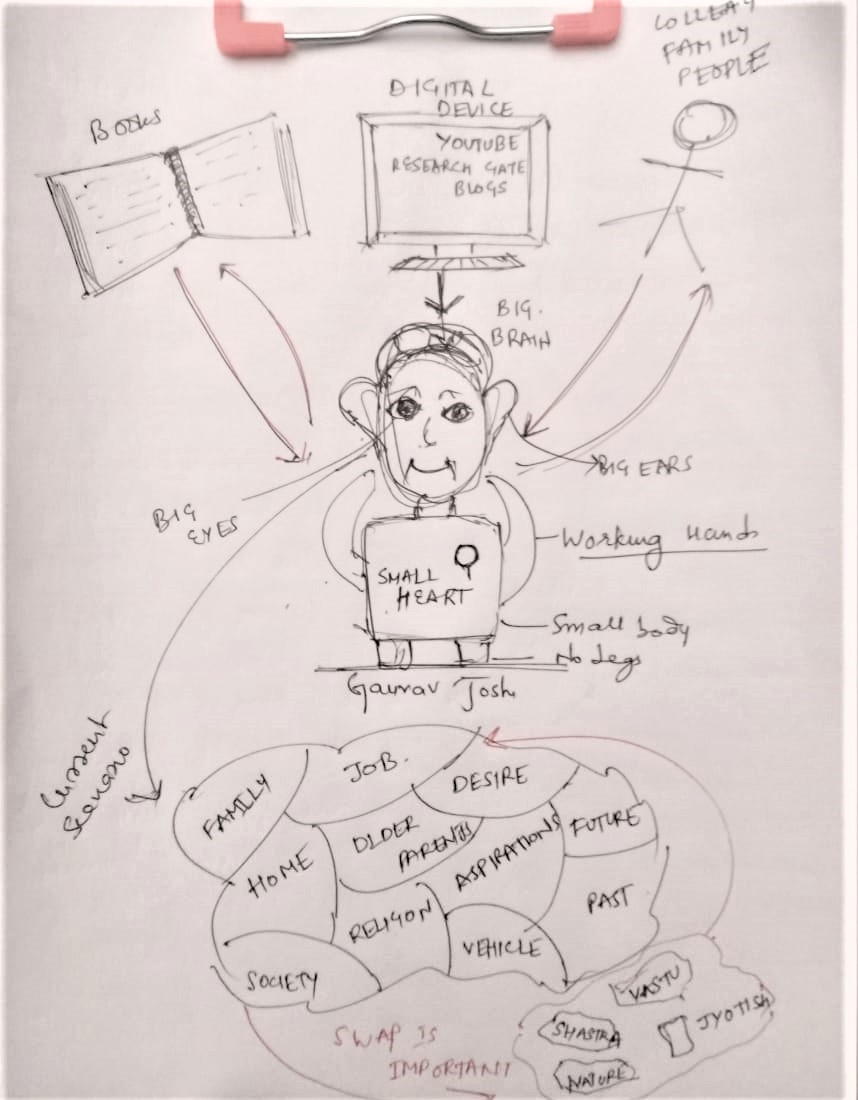 BOOKS
DIGITAL
DEVICE
YOUTUBE
RESEARCH GATE
BLOGS
FAMILY
PEOPLE
BIG
BRAIN
BIG EARS
BIG
EYES
Working Hands
SMALL
HEART
Small body
No Legs
Gaurav Joshi
Current
Scenario
FAMILY
JOB.
DESIRE
HOME
OLDER
PARENTS
ASPIRATIONS
FUTURE
PAST
RELIGON
VEHICLE
SOCIETY
SWAP IS
IMPORTANT
VASTU
SHASTRA
JYOTISH
NATURE